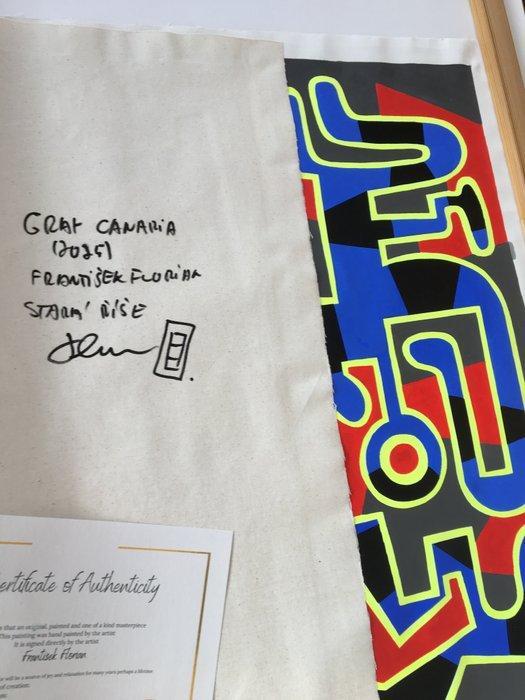 GRAF CANARIA
(2025)
FRANTIŠEK FLORIAN
STARÁ ŘÍŠE
ertificate of Authenticity
s that an original, painted and one of a kind masterpiece
This painting was hand painted by the artist
It is signed directly by the artist
František Florian
er will be a source of joy and relaxation for many years perhaps a lifetime
of creation: